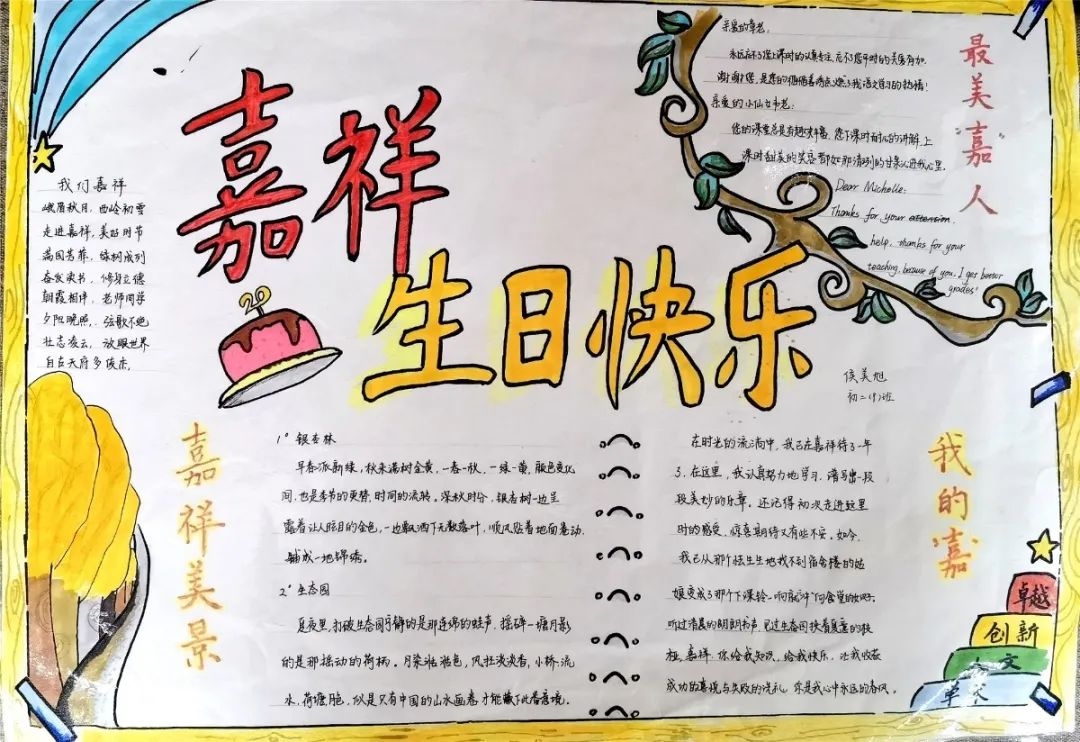 嘉祥
生日快乐
20
我们嘉祥
峨眉秋月，西岭初雪
走进嘉祥，美好时节
满园芳菲，绿树成列
奋发读书，修身立德
朝霞相伴，老师同学
夕阳晚照，弦歌不绝
壮志凌云，放眼世界
自古天府多俊杰。
亲爱的章老：
永远忘不了您上课时的认真专注，忘不了您平时的关爱有加，
谢谢您，是您的循循善诱点燃了我语文学习的热情！
亲爱的小仙女韦老：
您的课堂总是有趣味丰富，您下课时耐心的讲解，上
课时甜美的笑容都如那清冽的甘泉沁进我心里。
Dear Michelle:
Thanks for your attention,
help, thanks for your
teaching, because of you, I get better
grades"
最美"嘉"人
侯美旭
初二(9)班
嘉祥美景
1° 银杏林
早春派新绿，秋来满树金黄，一春一秋，一绿一黄，颜色变化
间，也是季节的更替，时间的流转。深秋时分，银杏树一边呈
露着让人眩目的金色，一边飘洒下无数落叶，顺风贴着地面卷动，
铺成一地锦绣。
2° 生态园
夏夜里，打破生态园宁静的是那连绵的蛙声，摇碎一塘月影
的是那摇动的荷柄。月染淡淡色，风拉淡淡香，小桥，流
水，荷塘，似是只有中国的山水画卷才能藏下此番意境。
我的"嘉"
在时光的流淌中，我已在嘉祥待了一年
了，在这里，我认真努力地学习，谱写出一段
段美妙的乐章。还记得初次走进这里
时的感受，惊喜期待又有些不安，如今，
我已从那个怯生生地找不到宿舍楼的姑
娘变成了那个下课铃一响就冲向食堂的女孩。
听过清晨的朗朗书声，见过生态园挟着夏意的秋
枝，嘉祥，你给我知识，给我快乐，让我收获
成功的喜悦与失败的洗礼，你是我心中永远的春风。
卓越
创新
文